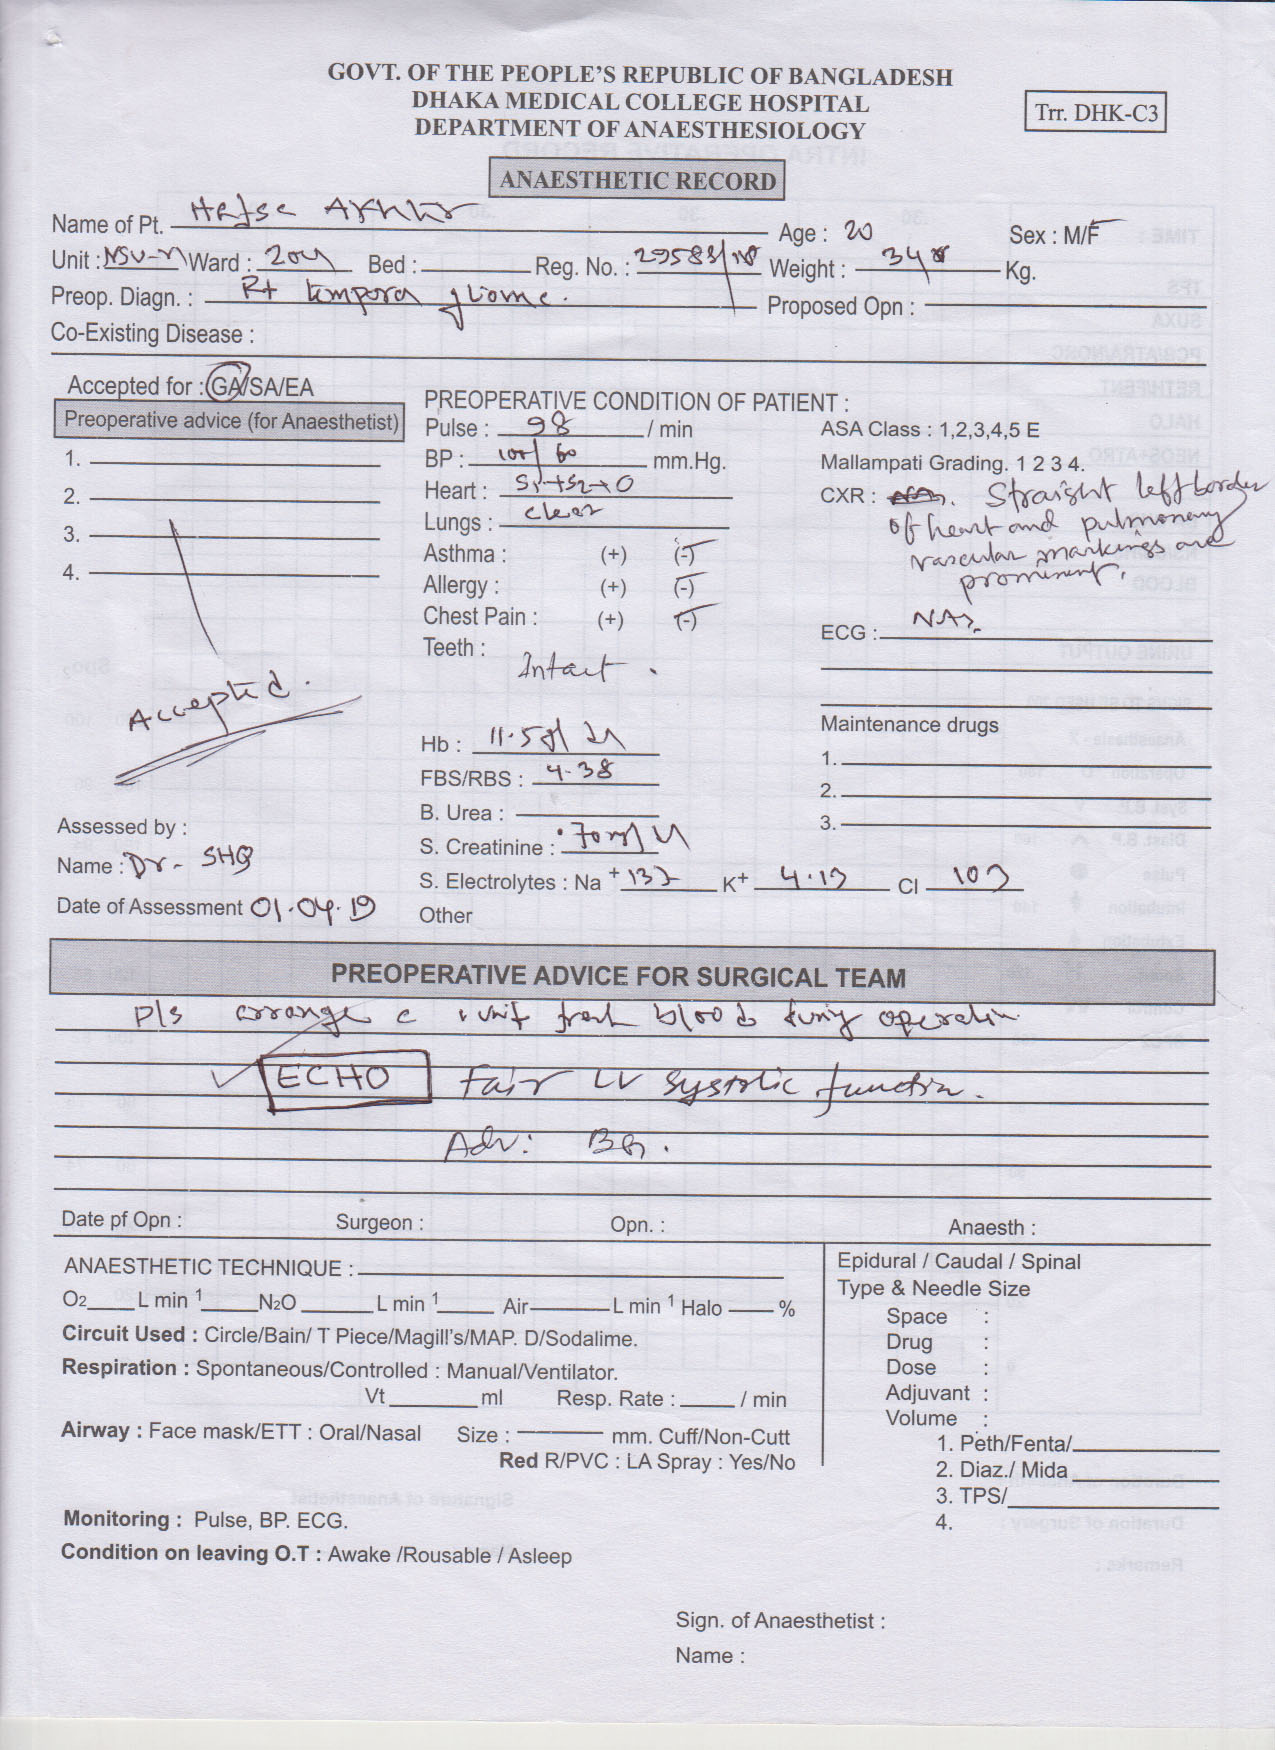 GOVT. OF THE PEOPLE'S REPUBLIC OF BANGLADESH
DHAKA MEDICAL COLLEGE HOSPITAL
DEPARTMENT OF ANAESTHESIOLOGY
Trr. DHK-C3
ANAESTHETIC RECORD
Name of Pt. Age : 20 Sex : M/F
Unit : Ward : 204 Bed : Reg. No. : Weight : 34 Kg.
Preop. Diagn. : Rt tempora glioma. Proposed Opn :
Co-Existing Disease :
Accepted for : GA/SA/EA
Preoperative advice (for Anaesthetist)
1.
2.
3.
4.
Accepted.
Assessed by :
Name : Dr. SHQ
Date of Assessment 01.04.19
PREOPERATIVE CONDITION OF PATIENT :
Pulse : 98 / min
BP : 100/60 mm.Hg.
Heart : S1+S2+0
Lungs : clear
Asthma : (+) (-)
Allergy : (+) (-)
Chest Pain : (+) (-)
Teeth : Intact.
Hb : 11.5
FBS/RBS : 4.38
B. Urea :
S. Creatinine : .70
S. Electrolytes : Na + 137 K+ 4.13 Cl 103
Other
ASA Class : 1,2,3,4,5 E
Mallampati Grading. 1 2 3 4.
CXR : Straight left border
of heart and pulmonary
vascular markings are
prominent.
ECG : NAD.
Maintenance drugs
1.
2.
3.
PREOPERATIVE ADVICE FOR SURGICAL TEAM
pls arrange unit fresh blood during operation
ECHO Fair LV systolic function.
Adv:
Date pf Opn : Surgeon : Opn. : Anaesth :
ANAESTHETIC TECHNIQUE :
O2 L min 1 N2O L min 1 Air L min 1 Halo %
Circuit Used : Circle/Bain/ T Piece/Magill's/MAP. D/Sodalime.
Respiration : Spontaneous/Controlled : Manual/Ventilator.
Vt ml Resp. Rate : / min
Airway : Face mask/ETT : Oral/Nasal Size : mm. Cuff/Non-Cutt
Red R/PVC : LA Spray : Yes/No
Monitoring : Pulse, BP. ECG.
Condition on leaving O.T : Awake /Rousable / Asleep
Epidural / Caudal / Spinal
Type & Needle Size
Space :
Drug :
Dose :
Adjuvant :
Volume :
1. Peth/Fenta/
2. Diaz./ Mida
3. TPS/
4.
Sign. of Anaesthetist :
Name :